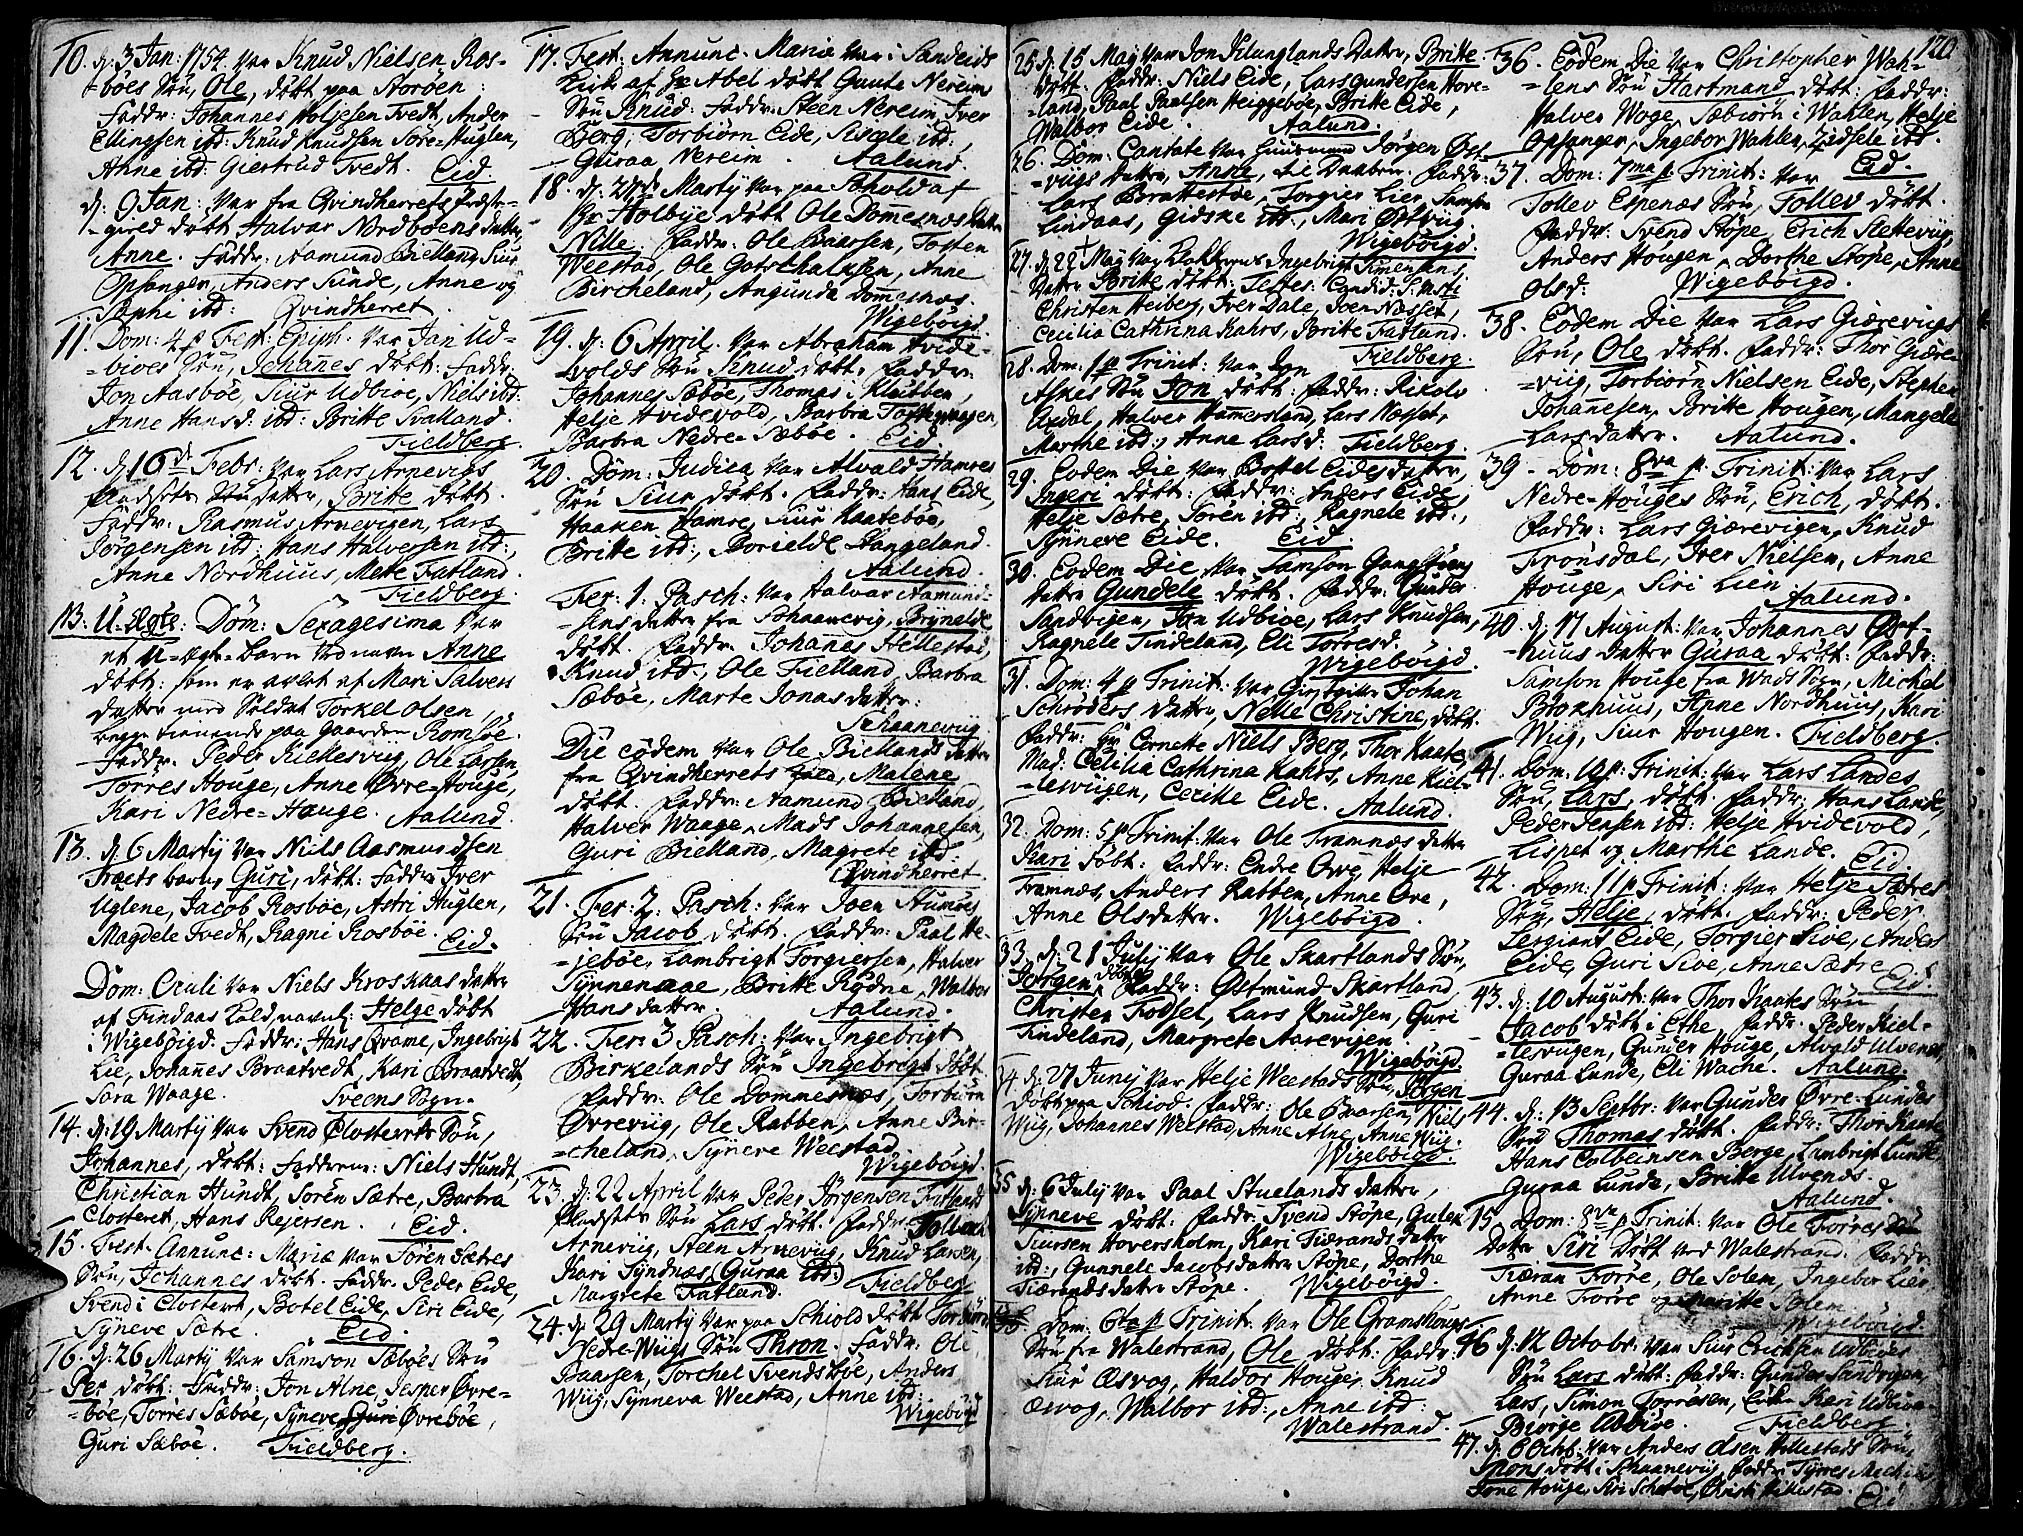 10. d. 3 Jan: 1754 var Knud Nielsen Ros-
-böes Sön, Ole, döbt paa Storöen:
Faddr: Johannes Holjesen Tvedt, Anders
Ellingsen ibd: Knud Knudsen Söre-Huglen,
Anne ibd: Giertrud Tvedt. Eid.
d. 6 Jan: var fra Qvindherrets Præste-
-gield döbt Halvar Nordböens datter
Anne. Faddr: Aamund Bielland, Siur
Opsanger, Anders Sunde, Anne og
Sophi ibd: Qvindherret.
11. Dom: 4 p Fest: Epiph: var Jan Ud-
-bioes Sön, Johannes döbt: Faddr:
Jon Aasböe, Siur Udbioe, Niels ibd:
Anne Hansd: ibd: Britte Svalland.
Fieldberg.
12. d. 16de Febr: var Lars Arnevigs
datter, Britte döbt.
Faddr: Rasmus Arnevigen, Lars
Jörgensen ibd: Hans Halversen ibd:,
Anne Nordhuus, Mette Fatland.
Fieldberg.
13. U-Ægte: Dom: Sexagesima var
et U-Ægte-barn ved navn Anne
döbt: som er avlet af Mari Salvers
datter med Soldat Torkel Olsen,
begge tienende paa Gaarden Romsöe.
Faddr: Peder Kiellesvig, Ole Larsen,
Torres Houge, Anne Övre-Houge,
Kari Nedre-Houge. Aalund.
13. d. 6 Martij var Niels Aasmundsen
Træets barn, Guri, döbt: Faddr: Iver
Uglene, Jacob Rosböe, Astri Huglen,
Magdele Tvedt, Ragni Rosböe.
Eid.
Dom: Oculi var Niels Kroskaas datter
af Findaas navnl: Helge döbt
i Wigeböigd. Faddr: Hans Qvame, Ingebrigt
Lie, Johannes Braatvedt, Kari Braatvedt,
Sara Waage. Sveens Sogn.
14. d. 19 Martij var Svend Closterets Sön,
Johannes, döbt: Fadderne: Niels Hundt,
Christian Hundt, Sören Sætre, Barbra
Closteret, Hans Rejersen. Eid.
15. Fest. Annunc: Mariæ var Sören Sætres
Sön, Johannes döbt. Faddr: Peder Eide,
Svend i Closteret, Botel Eide, Siri Eide,
Syneve Sætre. Eid.
16. d. 26 Martij var Samson Sæböes Sön
Per döbt: Faddr: Jon Alne, Jesper Övre-
-böe, Torres Sæböe, Syneve Guri Övreböe,
Guri Sæböe. Fieldberg.
17. Fest: Annunc. Mariæ var i Sandeids
Kirke af Hr Abel döbt Gaute Nereims
Sön Knud. Faddr: Steen Nereim, Iver
Berg, Torbiörn Eide, Sissele ibd:,
Guraa Nereim. Aalund.
18. d. Martij var paa Schold af
Hr Holbye döbt Ole Dommesnes datter
Nille. Faddr: Ole Baarsen, Tosten
Weestad, Ole Gotschalksen, Anne
Bircheland, Angunda Dommesnes.
Wigeböigd.
19. d. 6 April. var Abraham Hvide-
-volds Sön Knud döbt. Faddr:
Johannes Sæböe, Thomas i Klubben,
Helje Hvidevold, Barbra
Barbra Nedre-Sæböe. Eid.
20. Dom: Judica var Alvald Hamres
Sön Siur döbt. Faddr: Hans Eide,
Haaken Hamre, Siur Kaateböe,
Britte ibd:, Borielde Hangeland.
Aalund.
Fer: 1. Pasch: var Halvar Aamund-
-sens datter fra Schaanevig, Brynelde
döbt. Faddr: Johanes Hellestöe,
Knud ibd:, Ole Fielland, Barbra
Sæböe, Marte Jonasdatter.
Schaanevig
Die eödem var Ole Biellands datter
fra Qvindherrets, Malene
döbt. Faddr: Aamund Bielland,
Halver Waage, Mads Johannesen,
Guri Bielland, Magrete ibd:
Qvindherret.
21. Fer: 2. Pasch: var Joen
Sön Jacob döbt. Faddr: Paal He-
-jeböe, Lambrigt Torgiersen, Halver
Tynnenaae, Britte Rödne, Walbor
Hansdatter. Aalund.
22. Fer: 3 Pasch: var Ingebrigt
Birkelands Sön Ingebrigt döbt
Faddr: Ole Dommesnes, Torbiörn
Övrevig, Ole Rabben, Anne Bir-
-cheland, Syneve Weestad
Wigeböigd.
23. d. 22 April var Peder Jörgensen Fatlands
Sön Lars döbt. Faddr: Tollev
Arnevig, Steen Arnevig, Knud Larsen,
Kari Syndnæs, (Guraa ibd:)
Margrete Fatland. Fieldberg
24. d. 29 Martij var paa Schiold döbt Torbiörn
Nedre-Wiigs Sön Thron. Faddr: Ole
Baarsen, Torchel Svendsböe, Anders
Wiig, Synneva Weestad, Anne ibd:
Wigeböigd
120.
25. d. 15 May var Jon Klunglands datter, Britte
döbt. Faddr: Niels Eide, Lars Gundersen Hove-
-land, Paal Paalsen Heiggeböe, Britte Eide,
Walbor Eide. Aalund.
26. Dom: Cantate var Jörgen Öst-
-viigs datter, Anne, til Daaben. Faddr:
Lars Brattestöe, Torgier Lier, Samson
Lindaas, Gidske ibd:, Mari Östviig.
Wigeböigd.
27. d. 22 May var Ingebrigt Simensens
datter Britte döbt: Testes: Candid: S: Msti
Christen Heiberg, Iver Dale, Joen Næsset,
Cecilia Cathrina Kahrs, Britte Fatland.
Fieldberg.
28. Dom: 1 p Trinit: var Jon
Askes Sön Jon döbt. Faddr: Rikolv
Axdal, Halver Hamersland, Lars Næsset,
Marthe ibd:, Anne Larsd: Fieldberg.
29. Eodem Die var Bottel Eides datter,
Ingeri döbt: Faddr: Anders Eide,
Helje Sætre, Sören ibd:, Ragnele ibd:,
Synneve Eide. Eid.
30. Eodem Die var Samson Gangstöens
datter Gundele döbt. Faddr: Gunder
Sandvigen, Jon Udbioe, Lars Knudsen,
Ragnele Tindeland, Eli Torresd.
Wigeböigd.
31. Dom: 4 p Trinit: var Johan
Schröders datter, Nelle Christine, döbt.
Faddr: Hr Cornette Niels Berg, Thor Kaate,
Mad: Cecilia Cathrina Kahrs, Anne Kiel-
-lesviigen, Cecilie Eide. Aalund.
32. Dom: 5 p Trinit: var Ole Framnæs datter
Kari döbt: Faddr: Endre Ove, Helje
Framnæs, Anders Rabben, Anne Ove,
Anne Olsdatter. Wigeböigd.
33. d. 21 Julij var Ole Skartlands Sön,
Jörgen, döbt. Faddr: Östmund Skartland,
Christen Födsel, Lars Knudsen, Guri
Tindeland, Margrete Aarevigen.
Wigeböigd.
34. d. 27 Junij var Helje Weestads Sön, Jörgen
döbt paa Schiod. Faddr: Ole Baarsen, Niels
Wiig, Johannes Weestad, Anne Alne, Anne Wiig.
Wigeböigd.
35 d. 6 July var Paal Stuelands datter,
Synneve döbt. Faddr: Svend Stöpe, Gulek
Siursen Hoversholm, Kari Tiærandsdatter
ibd:, Gunnele Jacobsdatter Stöpe, Dorthe
Tiærandsdatter Stöpe. Wigeböigd.
Dom: 6ta p Trinit. var Ole Gramshougs
Sön fra Walestrand, Ole döbt: Faddr:
Siur Æsvog, Haldor Houge, Knud
Æsvog, Walbor ibd:, Anne ibd:
Walestrand.
36. Eodem Die var Christopher Wah-
-lens Sön Hartmand döbt. Faddr:
Halver Woge, Sæbiörn i Wahlen, Helje
Opsanger, Ingebor Wahlen, Zidsele ibd.
Eid.
37. Dom: 7ma p. Trinit: var
Tollev Espenæs Sön, Tollev döbt.
Faddr: Svend Stöpe, Erich Slettevig,
Anders Hougen, Dorthe Stöpe, Anne
Olsd: Wigeböigd.
38. Eodem Die var Lars Giærevigs
Sön, Ole döbt. Faddr: Thor Giære-
-viig, Torbiörn Nielsen Eide, Stephen
Johannesen, Britte Hougen, Mangele
Larsdatter. Aalund.
39. Dom: 8va p. Trinit: var Lars
Nedre-Houges Sön, Erich, döbt.
Faddr: Lars Giærevigen, Knud
Frönsdal, Iver Nielsen, Anne
Houge, Siri Lien.
Aalund.
40. d. 17 August: var Johannes Öst-
-huus datter Guraa döbt: Faddr:
Samson Houge fra Wads Sogn, Michel
Broxhuus, Anne Nordhuus, Kari
Wiig, Siur Hougen. Fieldberg.
41. Dom: 10 p: Trinit: var Lars Landes
Sön, Lars, döbt. Faddr: Hans Lande,
Peder Jensen ibd: Helje Hvidevold,
Lispet og Marthe Lande. Eid.
42. Dom: 11 p Trinit: var Helje Sætres
Sön, Helje, döbt. Faddr: Peder
Sergiant Eide, Torgier Sioe, Anders
Eide, Guri Sioe, Anne Sætre
Eid.
43. d. 10 August: var Thor Kaates Sön
Jacob döbt i Ethe. Faddr: Peder Kiel-
-lesvigen, Gunder Houge, Alvald Ulvenes,
Guraa Lunde, Eli Wache. Aalund.
44. d. 13 Septbr: var Gunder Övre-Lundes
Sön Thomas döbt. Faddr: Thor Kaate
Hans Colbeinsen Berge, Lambrigt Lunde,
Guraa Lunde, Britte Ulvends.
Aalund.
15. Dom: 8va p Trinit: var Ole Torres
datter Siri döbt ved Walestrand. Faddr:
Tiæran Törre, Ole Solem, Ingebor Lier
Anne Törre og Maritte Solem.
Wigeböigd.
46 d. 12 Octobr: var Siur Erichsen Udbioes
Sön Lars döbt. Faddr: Gunder Sandvigen,
Lars, Simon Torresen, Kari Udbioe
Biörge Udbioe. Fieldberg
47. d. 6 Octb: var Anders Olsen Hillestads Sön,
Mons döbt i Schaanevig. Faddr: Törres
Tone Houge, Siri Hillestad.
Eid